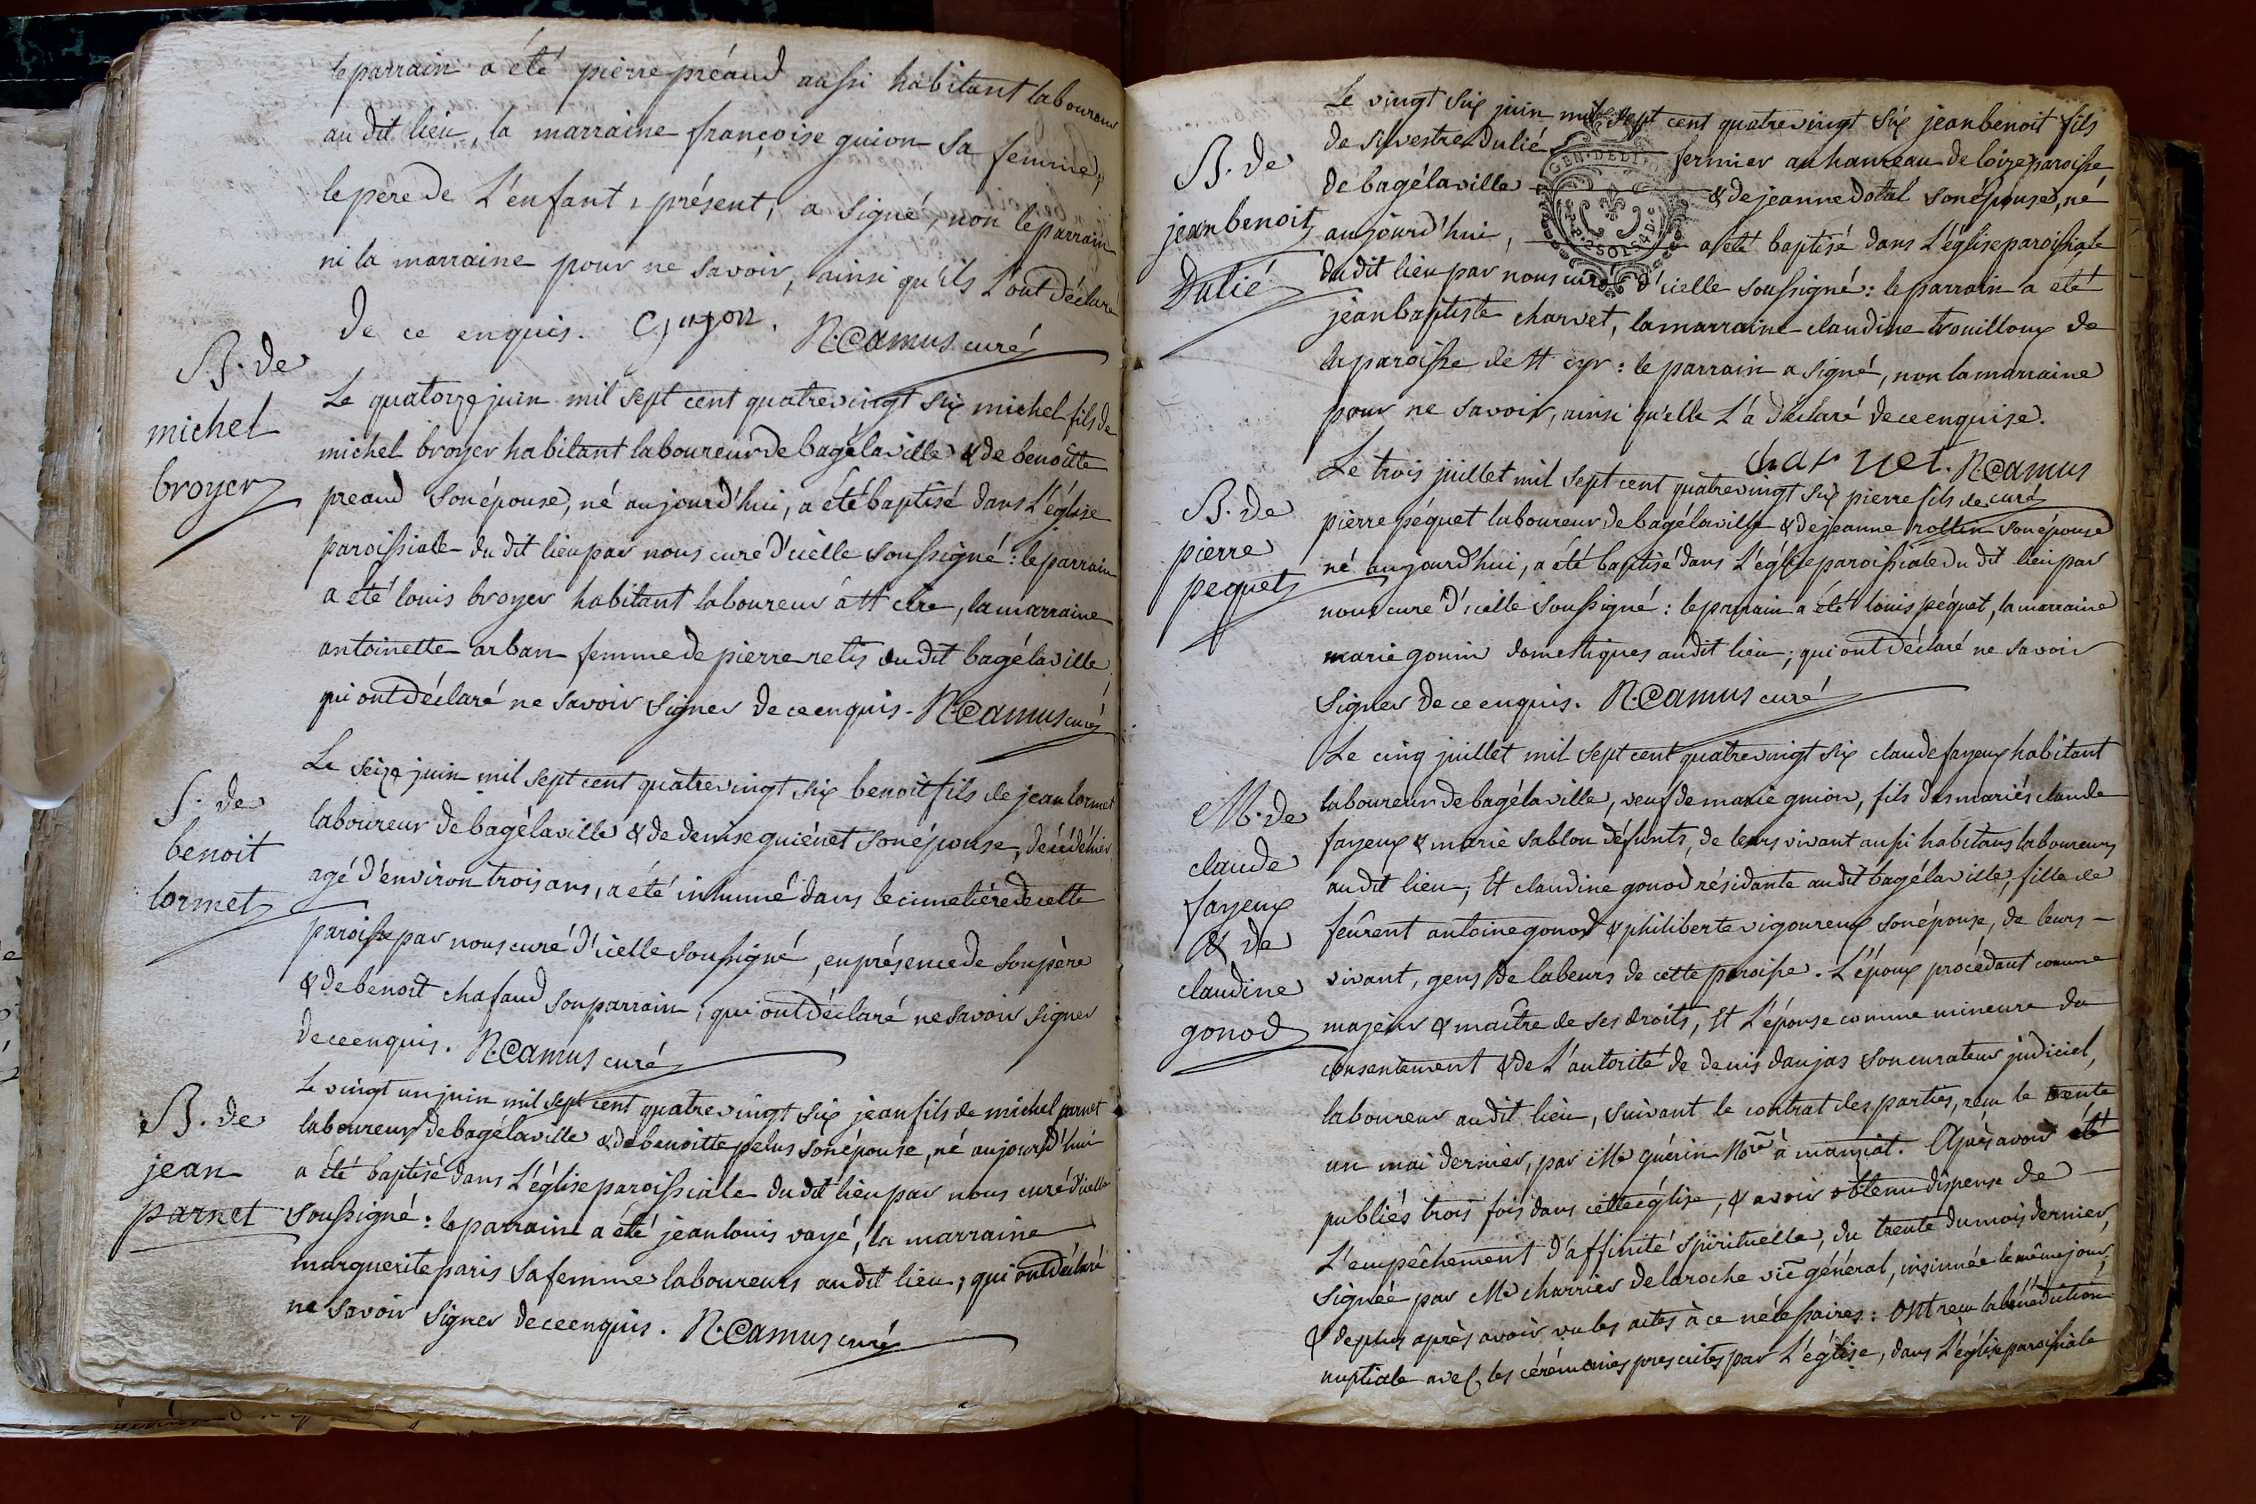 le parrain a été pierre préaud aussi habitant laboureur
au dit lieu, la marraine françoise guion sa femme,
le père de L'enfant, présent, a signé, non le parrain
ni la marraine pour ne savoir, ainsi qu'ils L'ont déclaré
de ce enquis. R. Camus curé
B. de
michel
broyer
Le quatorze juin mil sept cent quatrevingt six michel fils de
michel broyer habitant laboureur de bagélaville & de benoîte
preaud son épouse, né aujourd'hui, a été baptisé dans L'église
paroissiale du dit lieu par nous curé d'icelle soussigné : le parrain
a été louis broyer habitant laboureur à st cire, la marraine
antoinette arban femme de pierre retis du dit bagélaville,
qui ont déclaré ne savoir signer de ce enquis. R. Camus curé
S. de
benoit
lormet
Le seize juin mil sept cent quatrevingt six benoit fils de jean lormet
laboureur de bagélaville & de denise guiénet son épouse, décédé hier
agé d'environ trois ans, a été inhumé dans le cimetière de cette
paroisse par nous curé d'icelle soussigné, en présence de son père
& de benoît chafaud son parrain, qui ont déclaré ne savoir signer
de ce enquis. R. Camus curé
B. de
jean
parnet
Le vingt un juin mil sept cent quatrevingt six jean fils de michel parnet
laboureur de bagélaville & de benoitte pelus son épouse, né aujourd'hui
a été baptisé dans L'église paroissiale du dit lieu par nous curé d'icelle
soussigné : le parrain a été jean louis vayé, la marraine
marguerite paris sa femme laboureurs au dit lieu, qui ont déclaré
ne savoir signer de ce enquis. R. Camus curé
B. de
jean benoit
Dulié
Le vingt six juin mil sept cent quatrevingt six jean benoit fils
de silvestre Dulié fermier au hameau de loize paroisse
de bagélaville & de jeanne dotal son épouse, né
aujourd'hui, a été baptisé dans L'église paroissiale
du dit lieu par nous curé d'icelle soussigné : le parrain a été
jean baptiste charvet, la marraine claudine trouilloux de
la paroisse de st cyr : le parrain a signé, non la marraine
pour ne savoir, ainsi qu'elle L'a déclaré de ce enquise.
charvet. R. Camus
curé
B. de
pierre
pequet
Le trois juillet mil sept cent quatrevingt six pierre fils de
pierre péquet laboureur de bagélaville & de jeanne rollin son épouse
né aujourd'hui, a été baptisé dans L'église paroissiale du dit lieu par
nous curé d'icelle soussigné : le parrain a été louis péquet, la marraine
marie gonin domestiques au dit lieu ; qui ont déclaré ne savoir
signer de ce enquis. R. Camus curé
M. de
claude
fayeux
& de
claudine
gonod
Le cinq juillet mil sept cent quatrevingt six claude fayeux habitant
laboureur de bagélaville, veuf de marie guion, fils des mariés claude
fayeux & marie sablon défunts, de leurs vivant aussi habitans laboureurs
au dit lieu ; Et claudine gonod résidante au dit bagélaville, fille de
feûrent antoine gonod & philiberte vigoureux son épouse, de leurs
vivant, gens de labeurs de cette paroisse. L'époux procédant comme
majeur & maître de ses droits, Et L'épouse comme mineure du
consentement & de L'autorité de denis danjas son curateur judiciel,
laboureur au dit lieu, suivant le contrat des parties, reçu le trente
un mai dernier, par Me guérin Nore à manziat. Après avoir été
publiés trois fois dans cette église, & avoir obtenu dispense de
L'empêchement d'affinité spirituelle, du trente du mois dernier,
signée par Mr charrier de laroche vic général, insinuée le même jour,
& de plus après avoir vu les actes à ce nécessaires : Ont reçu la bénédiction
nuptiale avec les cérémonies prescrites par L'église, dans L'église paroissiale